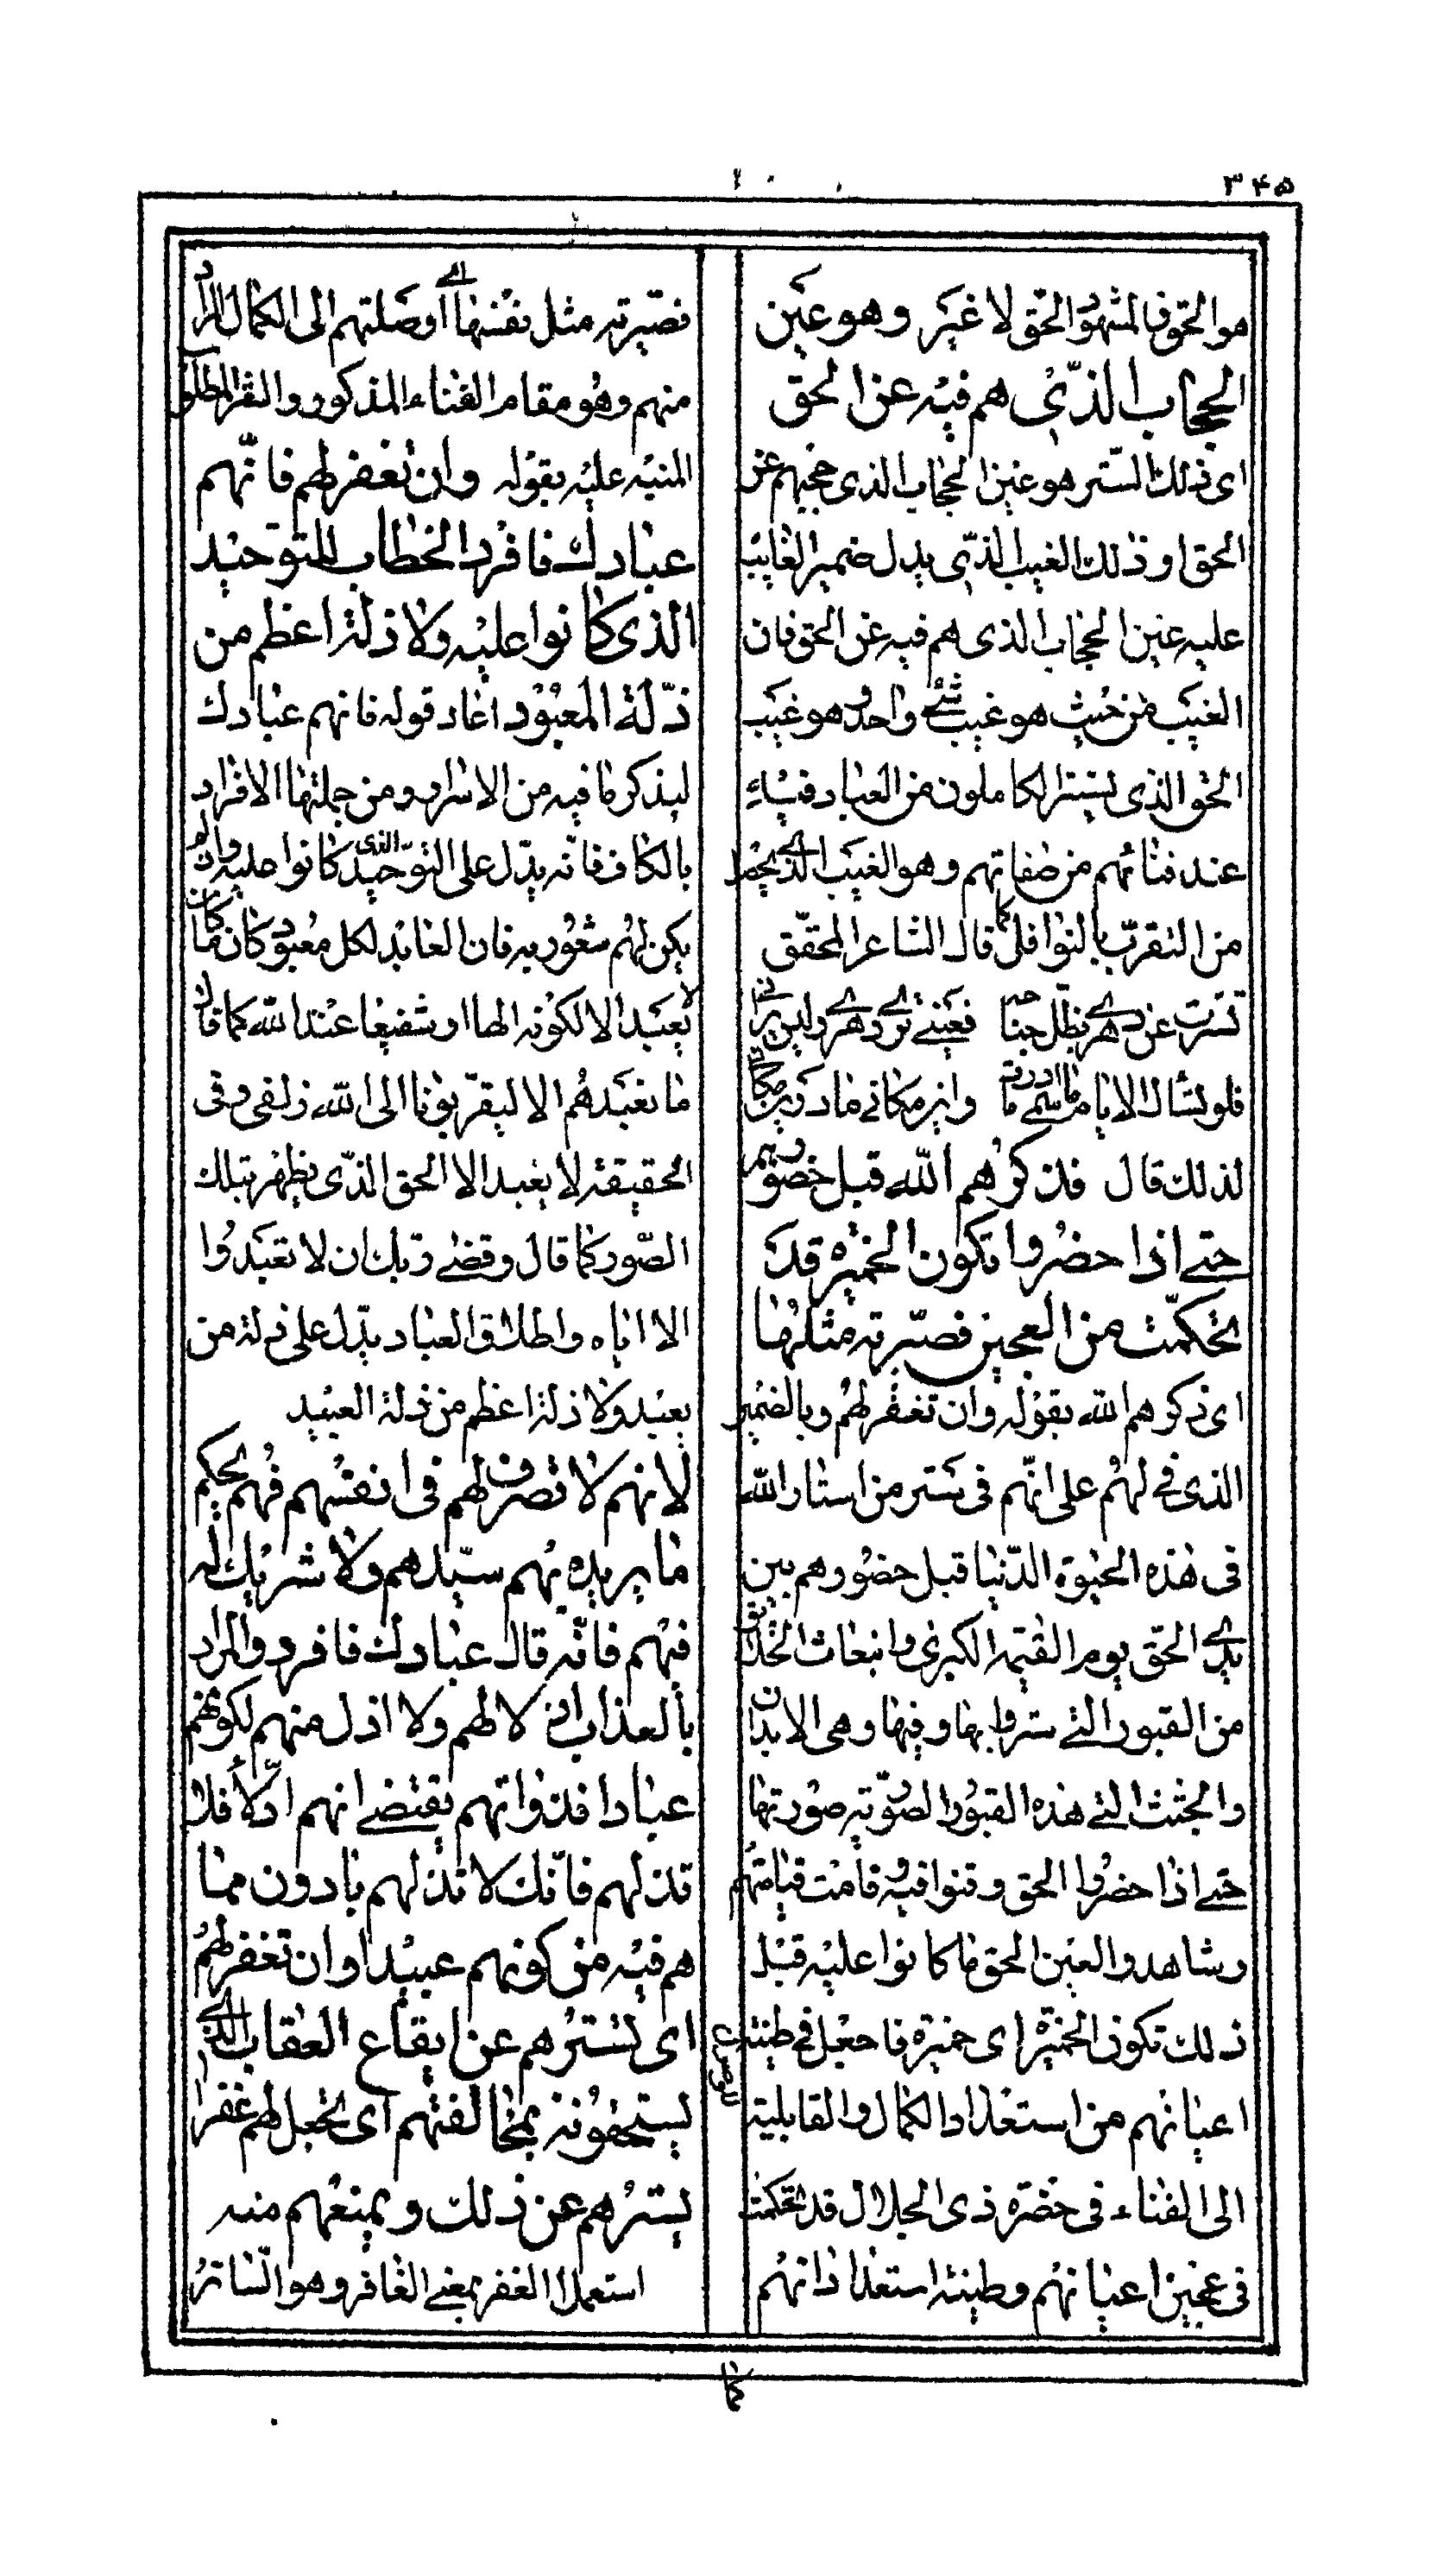 ۳۴۵
هو الحق فالمشهود الحق لا غير وهو عين
الحجاب الذي هم فيه عن الحق
اى ذلك الستر هو عين الحجاب الذى حجبهم عن
الحق او ذلك الغيب الذى يدل ضمير الغايب
عليه عين الحجاب الذى هم فيه عن الحق فان
الغيب من حيث هو غيب شئ واحد وهو غيب
الحق الذى يستتر الكاملون من العباد فيه
عند فنائهم من صفاتهم وهو الغيب الذى يحصل
من التقرب بالنوافل كما قال الشاعر المحقق
تسترت عن دهرى بظل جناحه فعينى ترى دهرى وليس يرانى
فلو تسأل الايام ما اسمى ما درت واين مكانى ما درين مكانى
لذلك قال فذكرهم الله قبل حضورهم
حتى اذا حضروا تكون الخميرة قد
تحكمت من العجين فصيرته مثلها
اى ذكرهم الله بقوله وان تغفر لهم وبالضمير
الذى فى لهم على انهم فى ستر من استار الله
فى هذه الحيوة الدنيا قبل حضورهم بين
يدى الحق يوم القيمة الكبرى وانبعاث الخلائق
من القبور التى ستروا بها وفيها وهى الابدان
والجثث التى هذه القبور الصورية صورتها
حتى اذا حضروا الحق وفنوا فيه وقامت قيامتهم
وشاهدوا لعين الحق ما كانوا عليه قبل
ذلك تكون الخميرة اى خميرة ما جعل فى طينة
اعيانهم من استعداد الكمال والقابلية للوصول
الى الفناء فى حضرة ذى الجلال قد تحكمت
فى عجين اعيانهم وطينة استعداداتهم
فصيرته مثل نفسها اى اوصلتهم الى الكمال المراد
منهم وهو مقام الفناء المذكور والقرالمطلق
المنبه عليه بقوله وان تغفر لهم فانهم
عبادك فافرد الخطاب للتوحيد
الذى كانوا عليه ولا ذلة اعظم من
ذلة المعبود اعاد قوله فانهم عبادك
ليذكر ما فيه من الاسرار ومن جملتها الافراد
بالكاف فانه يدل على التوحيد الذى كانوا عليه وان لم
يكن لهم شعور به فان العابد لكل معبود كان ما كان
لا يعبد الا لكونه الها او شفيعا عند الله كما قال
ما نعبدهم الا ليقربونا الى الله زلفى وفى
الحقيقة لا يعبد الا الحق الذى يظهر بتلك
الصور كما قال وقضى ربك ان لا تعبدوا
الا اياه واطلاق العباد يدل على ذلة من
يعبد ولا ذلة اعظم من ذلة العبيد
لانهم لا تصرف لهم فى انفسهم فهم بحكم
ما يريده بهم سيدهم ولا شريك له
فيهم فانه قال عبادك فافرد والمراد
بالعذاب اذلالهم ولا اذل منهم لكونهم
عبادا فذواتهم يقتضى انهم اذلاء فلا
تذلهم فانك لا تذلهم بادون مما
هم فيه من كونهم عبيدا وان تغفر لهم
اى تسترهم عن ايقاع العقاب الذى
يستحقونه بمخالفتهم اى تجعل لهم غفرا
يسترهم عن ذلك ويمنعهم منه
استعمل الغفر بمعنى الغافر وهو الساتر
كما